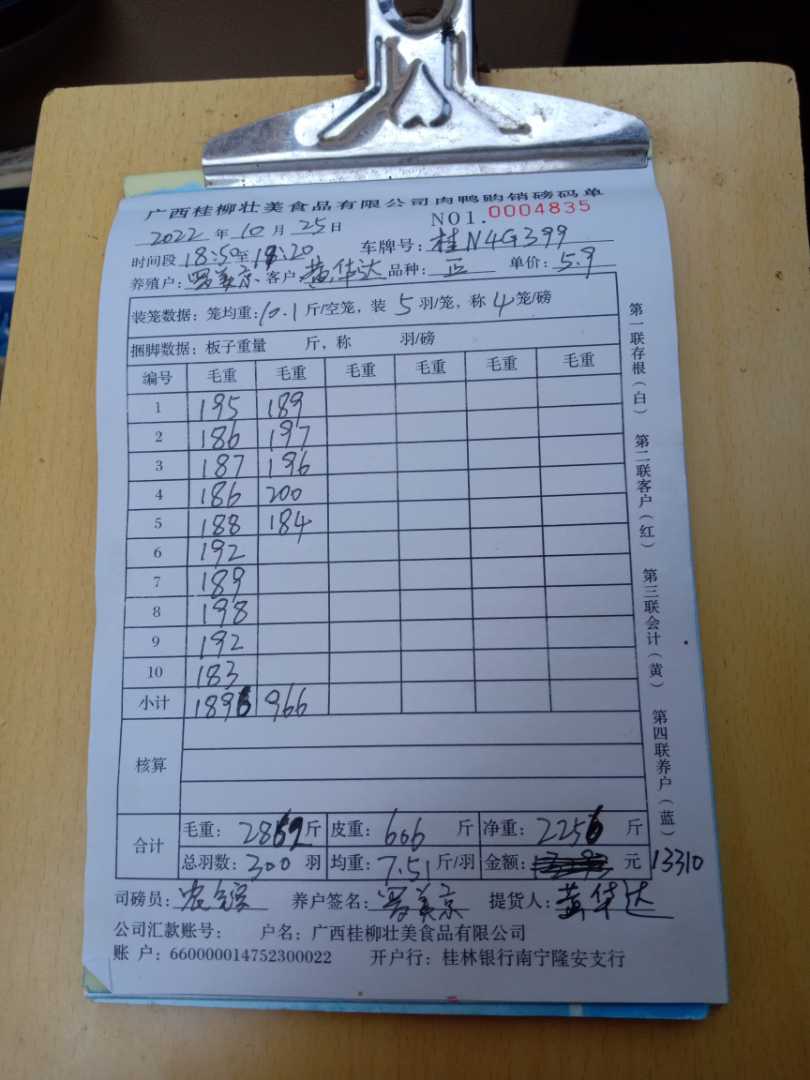 广西桂柳壮美食品有限公司肉鸭购销磅码单
NO1.0004835
2022 年 10 月 25 日
时间段 18:50至19:20 车牌号: 桂N4G399
养殖户: 罗美京 客户 黄华达 品种: 正 单价: 5.9
装笼数据: 笼均重: 10.1 斤/空笼, 装 5 羽/笼, 称 4 笼/磅
捆脚数据: 板子重量 斤, 称 羽/磅
编号 毛重 毛重 毛重 毛重 毛重 毛重
1 195 189
2 186 197
3 187 196
4 186 200
5 188 184
6 192
7 189
8 198
9 192
10 183
小计 1896 966
核算
合计 毛重: 2862 斤 皮重: 606 斤 净重: 2256 斤
总羽数: 300 羽 均重: 7.51 斤/羽 金额: 元 13310
司磅员: 养户签名: 罗美京 提货人: 黄华达
公司汇款账号: 户名: 广西桂柳壮美食品有限公司
账 户: 660000014752300022 开户行: 桂林银行南宁隆安支行
第一联存根(白) 第二联客户(红) 第三联会计(黄) 第四联养户(蓝)